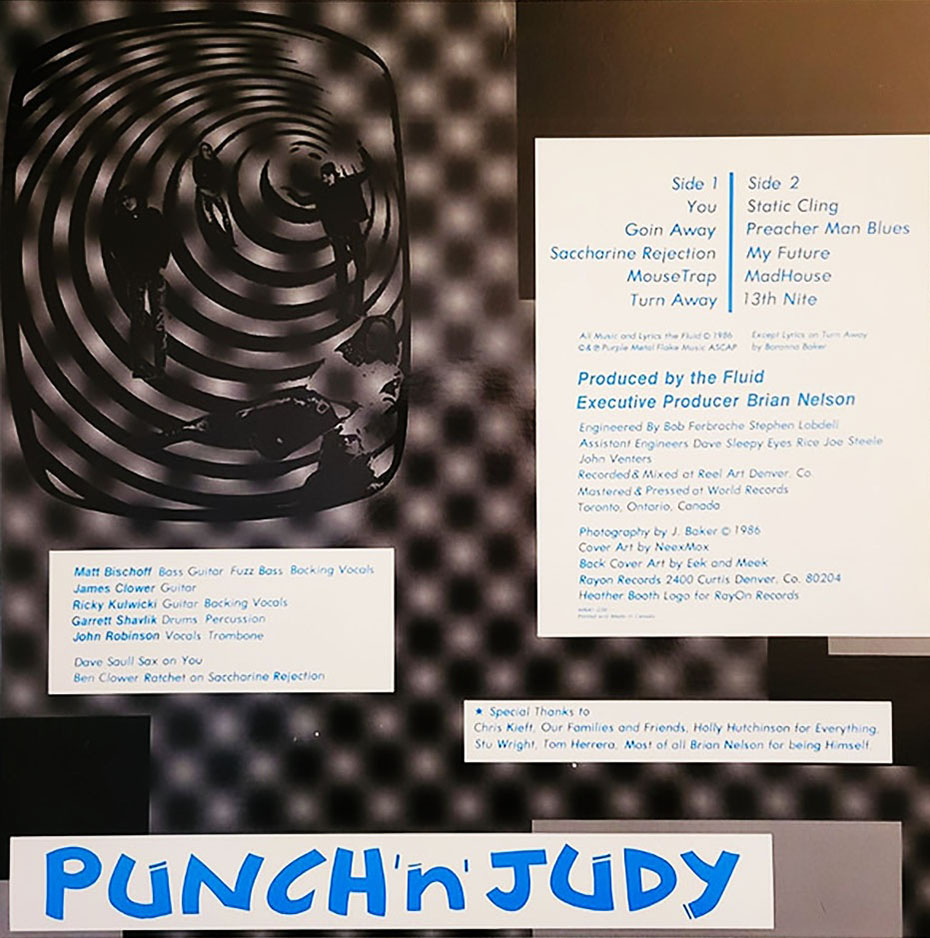 Side 1 | Side 2
You | Static Cling
Goin Away | Preacher Man Blues
Saccharine Rejection | My Future
MouseTrap | MadHouse
Turn Away | 13th Nite
All Music and Lyrics the Fluid © 1986 Except Lyrics on Turn Away
©&℗ Purple Metal Flake Music ASCAP by Baronna Baker
Produced by the Fluid
Executive Producer Brian Nelson
Engineered By Bob Ferbrache Stephen Lobdell
Assistant Engineers Dave Sleepy Eyes Rice Joe Steele
John Venters
Recorded & Mixed at Reel Art Denver, Co.
Mastered & Pressed at World Records
Toronto, Ontario, Canada
Photography by J. Baker © 1986
Cover Art by NeexMox
Back Cover Art by Eek and Meek
Rayon Records 2400 Curtis Denver, Co. 80204
Heather Booth Logo for RayOn Records
Printed and Made in Canada
Matt Bischoff Bass Guitar Fuzz Bass Backing Vocals
James Clower Guitar
Ricky Kulwicki Guitar Backing Vocals
Garrett Shavlik Drums Percussion
John Robinson Vocals Trombone
Dave Saull Sax on You
Ben Clower Ratchet on Saccharine Rejection
★ Special Thanks to
Chris Kieft, Our Families and Friends, Holly Hutchinson for Everything,
Stu Wright, Tom Herrera, Most of all Brian Nelson for being Himself.
PUNCH 'n' JUDY